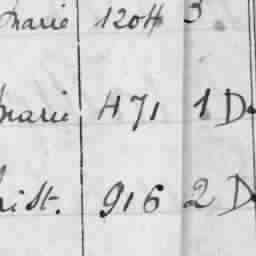 marie 1204 3
marie 471 1 D
hist. 916 2 D